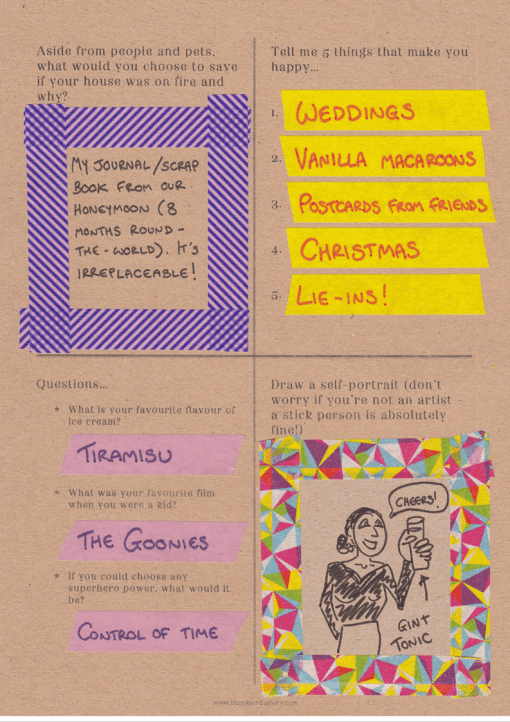 Aside from people and pets,
what would you choose to save
if your house was on fire and
why?
MY JOURNAL/SCRAP
BOOK FROM OUR
HONEYMOON (8
MONTHS ROUND-
THE-WORLD). IT'S
IRREPLACEABLE!
Tell me 5 things that make you
happy...
1. WEDDINGS
2. VANILLA MACAROONS
3. POSTCARDS FROM FRIENDS
4. CHRISTMAS
5. LIE-INS!
Questions...
* What is your favourite flavour of
ice cream?
TIRAMISU
* What was your favourite film
when you were a kid?
THE GOONIES
* If you could choose any
superhero power, what would it
be?
CONTROL OF TIME
Draw a self-portrait (don't
worry if you're not an artist –
a stick person is absolutely
fine!)
CHEERS!
GIN +
TONIC